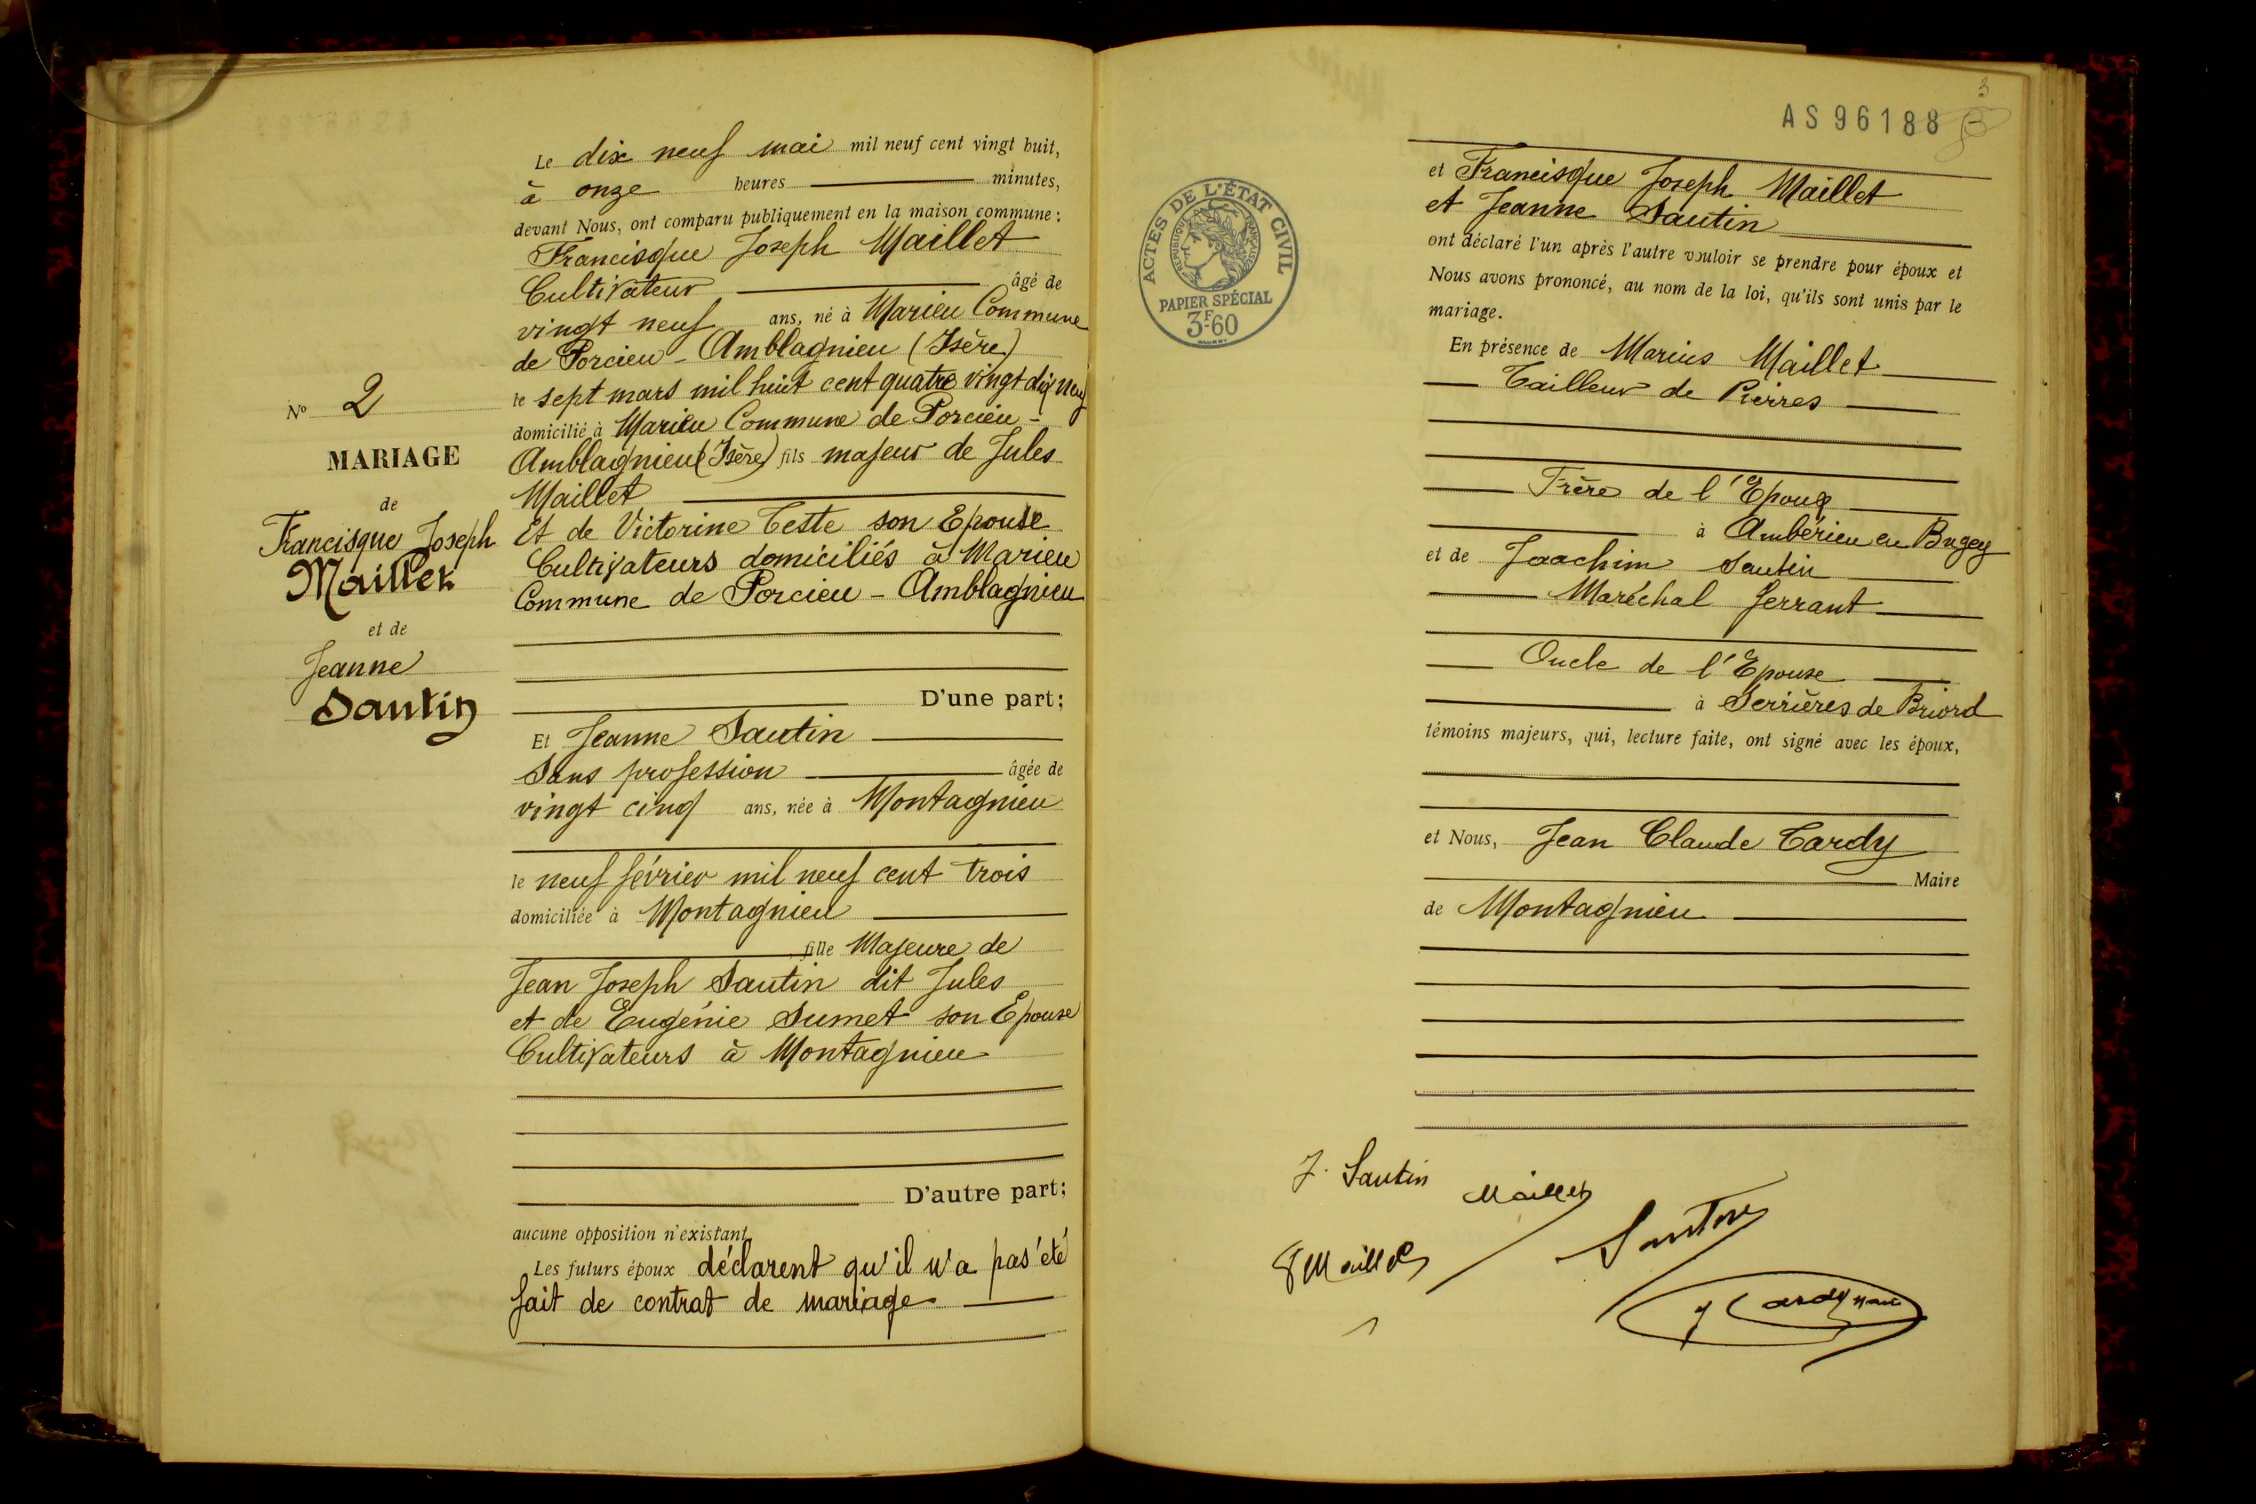 N° 2
MARIAGE
de
Francisque Joseph
Maillet
et de
Jeanne
Sautin
Le dix neuf mai mil neuf cent vingt huit,
à onze heures minutes,
devant Nous, ont comparu publiquement en la maison commune :
Francisque Joseph Maillet
Cultivateur âgé de
vingt neuf ans, né à Marieu Commune
de Porcieu - Amblagnieu (Isère)
le sept mars mil huit cent quatre vingt dix neuf
domicilié à Marieu Commune de Porcieu -
Amblagnieu (Isère) fils majeur de Jules
Maillet
Et de Victorine Teste son Epouse
Cultivateurs domiciliés à Marieu
Commune de Porcieu - Amblagnieu
D'une part ;
Et Jeanne Sautin
Sans profession âgée de
vingt cinq ans, née à Montagnieu
le neuf février mil neuf cent trois
domiciliée à Montagnieu
fille Majeure de
Jean Joseph Sautin dit Jules
et de Eugénie Sumet son Epouse
Cultivateurs à Montagnieu
D'autre part ;
aucune opposition n'existant
Les futurs époux déclarent qu'il n'a pas été
fait de contrat de mariage
ACTES DE L'ÉTAT CIVIL
REPUBLIQUE FRANÇAISE
PAPIER SPÉCIAL
3F60
3
AS 96188
et Francisque Joseph Maillet
et Jeanne Sautin
ont déclaré l'un après l'autre vouloir se prendre pour époux et
Nous avons prononcé, au nom de la loi, qu'ils sont unis par le
mariage.
En présence de Marius Maillet
Tailleur de Pierres
Frère de l'Epoux
à Ambérieu en Bugey
et de Joachim Sautin
Maréchal ferrant
Oncle de l'Epouse
à Serrières de Briord
témoins majeurs, qui, lecture faite, ont signé avec les époux,
et Nous, Jean Claude Cardy
Maire
de Montagnieu
J. Sautin
Maillet
Sautin
F Maillet
J Cardy maire